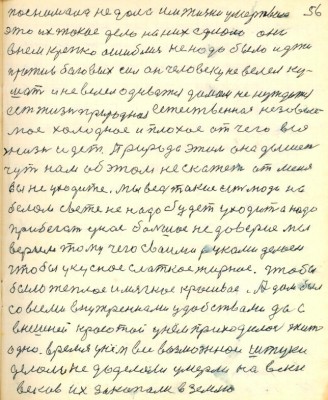 56
поснимала недолга им жизни умертвила
это их такое дело на них сделало они
в нем крепко ошиблися не надо было идти
против баговых сил он человеку не велел ку-
шат и не велел одеватся дамом не нуждатся
ест жизн природная естественная независи-
мое холодное и плохое от чего вся
жизн идет. Природа этим она дышет
чут нам об этом не скажет от меня
вы не уходите. Мы вед такие ест люди на
белом свете не надо будет уходит а надо
прибегат у нас балшое не доверие мы
верим тому чего сваими руками делаем
чтобы укусное слаткое жирное. Чтобы
было теплое и мягкое красивае. А дом был
со всеми внутренними удобствами да с
внешней красотой у нея приходилос жит
одно. время у них и вси возможной штуки
делали не доделали умерли на веки
веков их закапали в землю